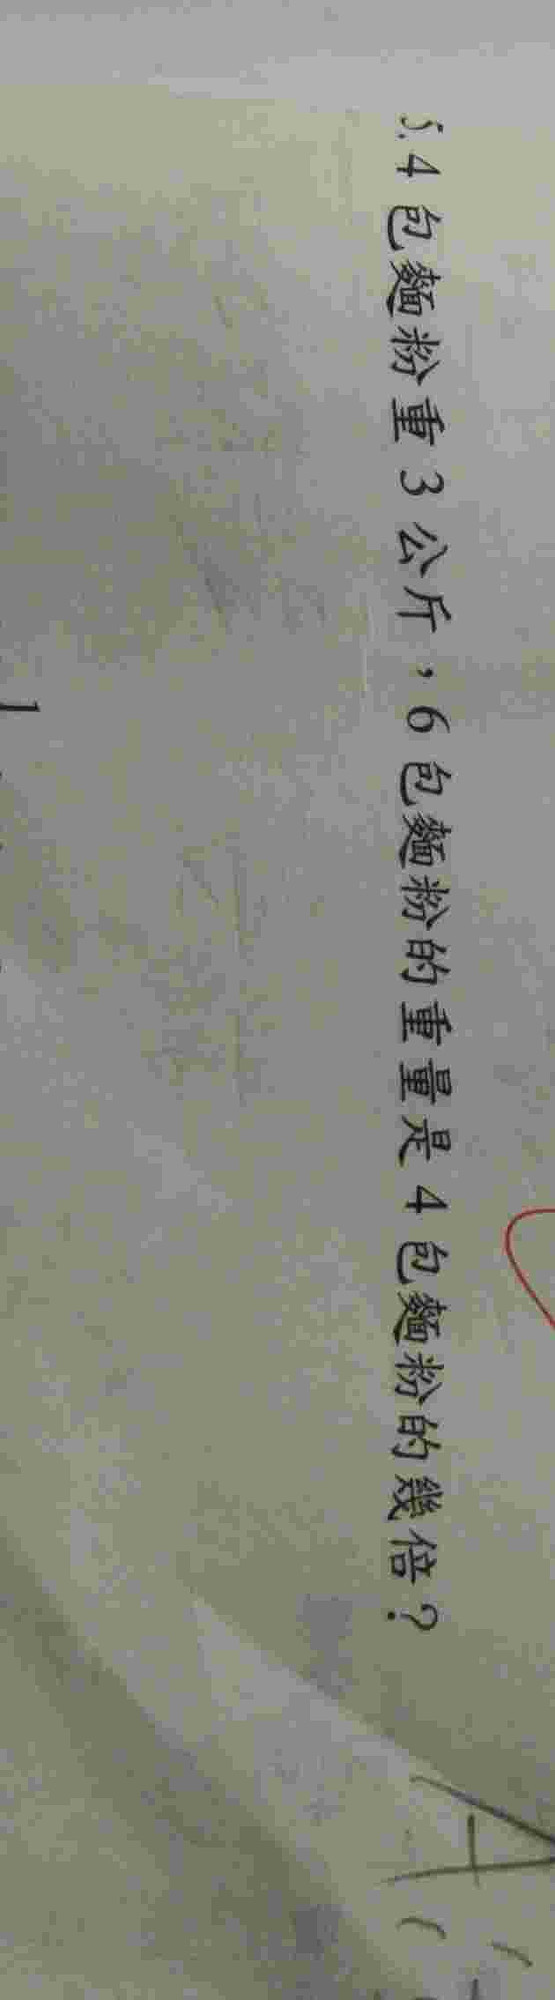 5.4包麵粉重3公斤，6包麵粉的重量是4包麵粉的幾倍？
A
1